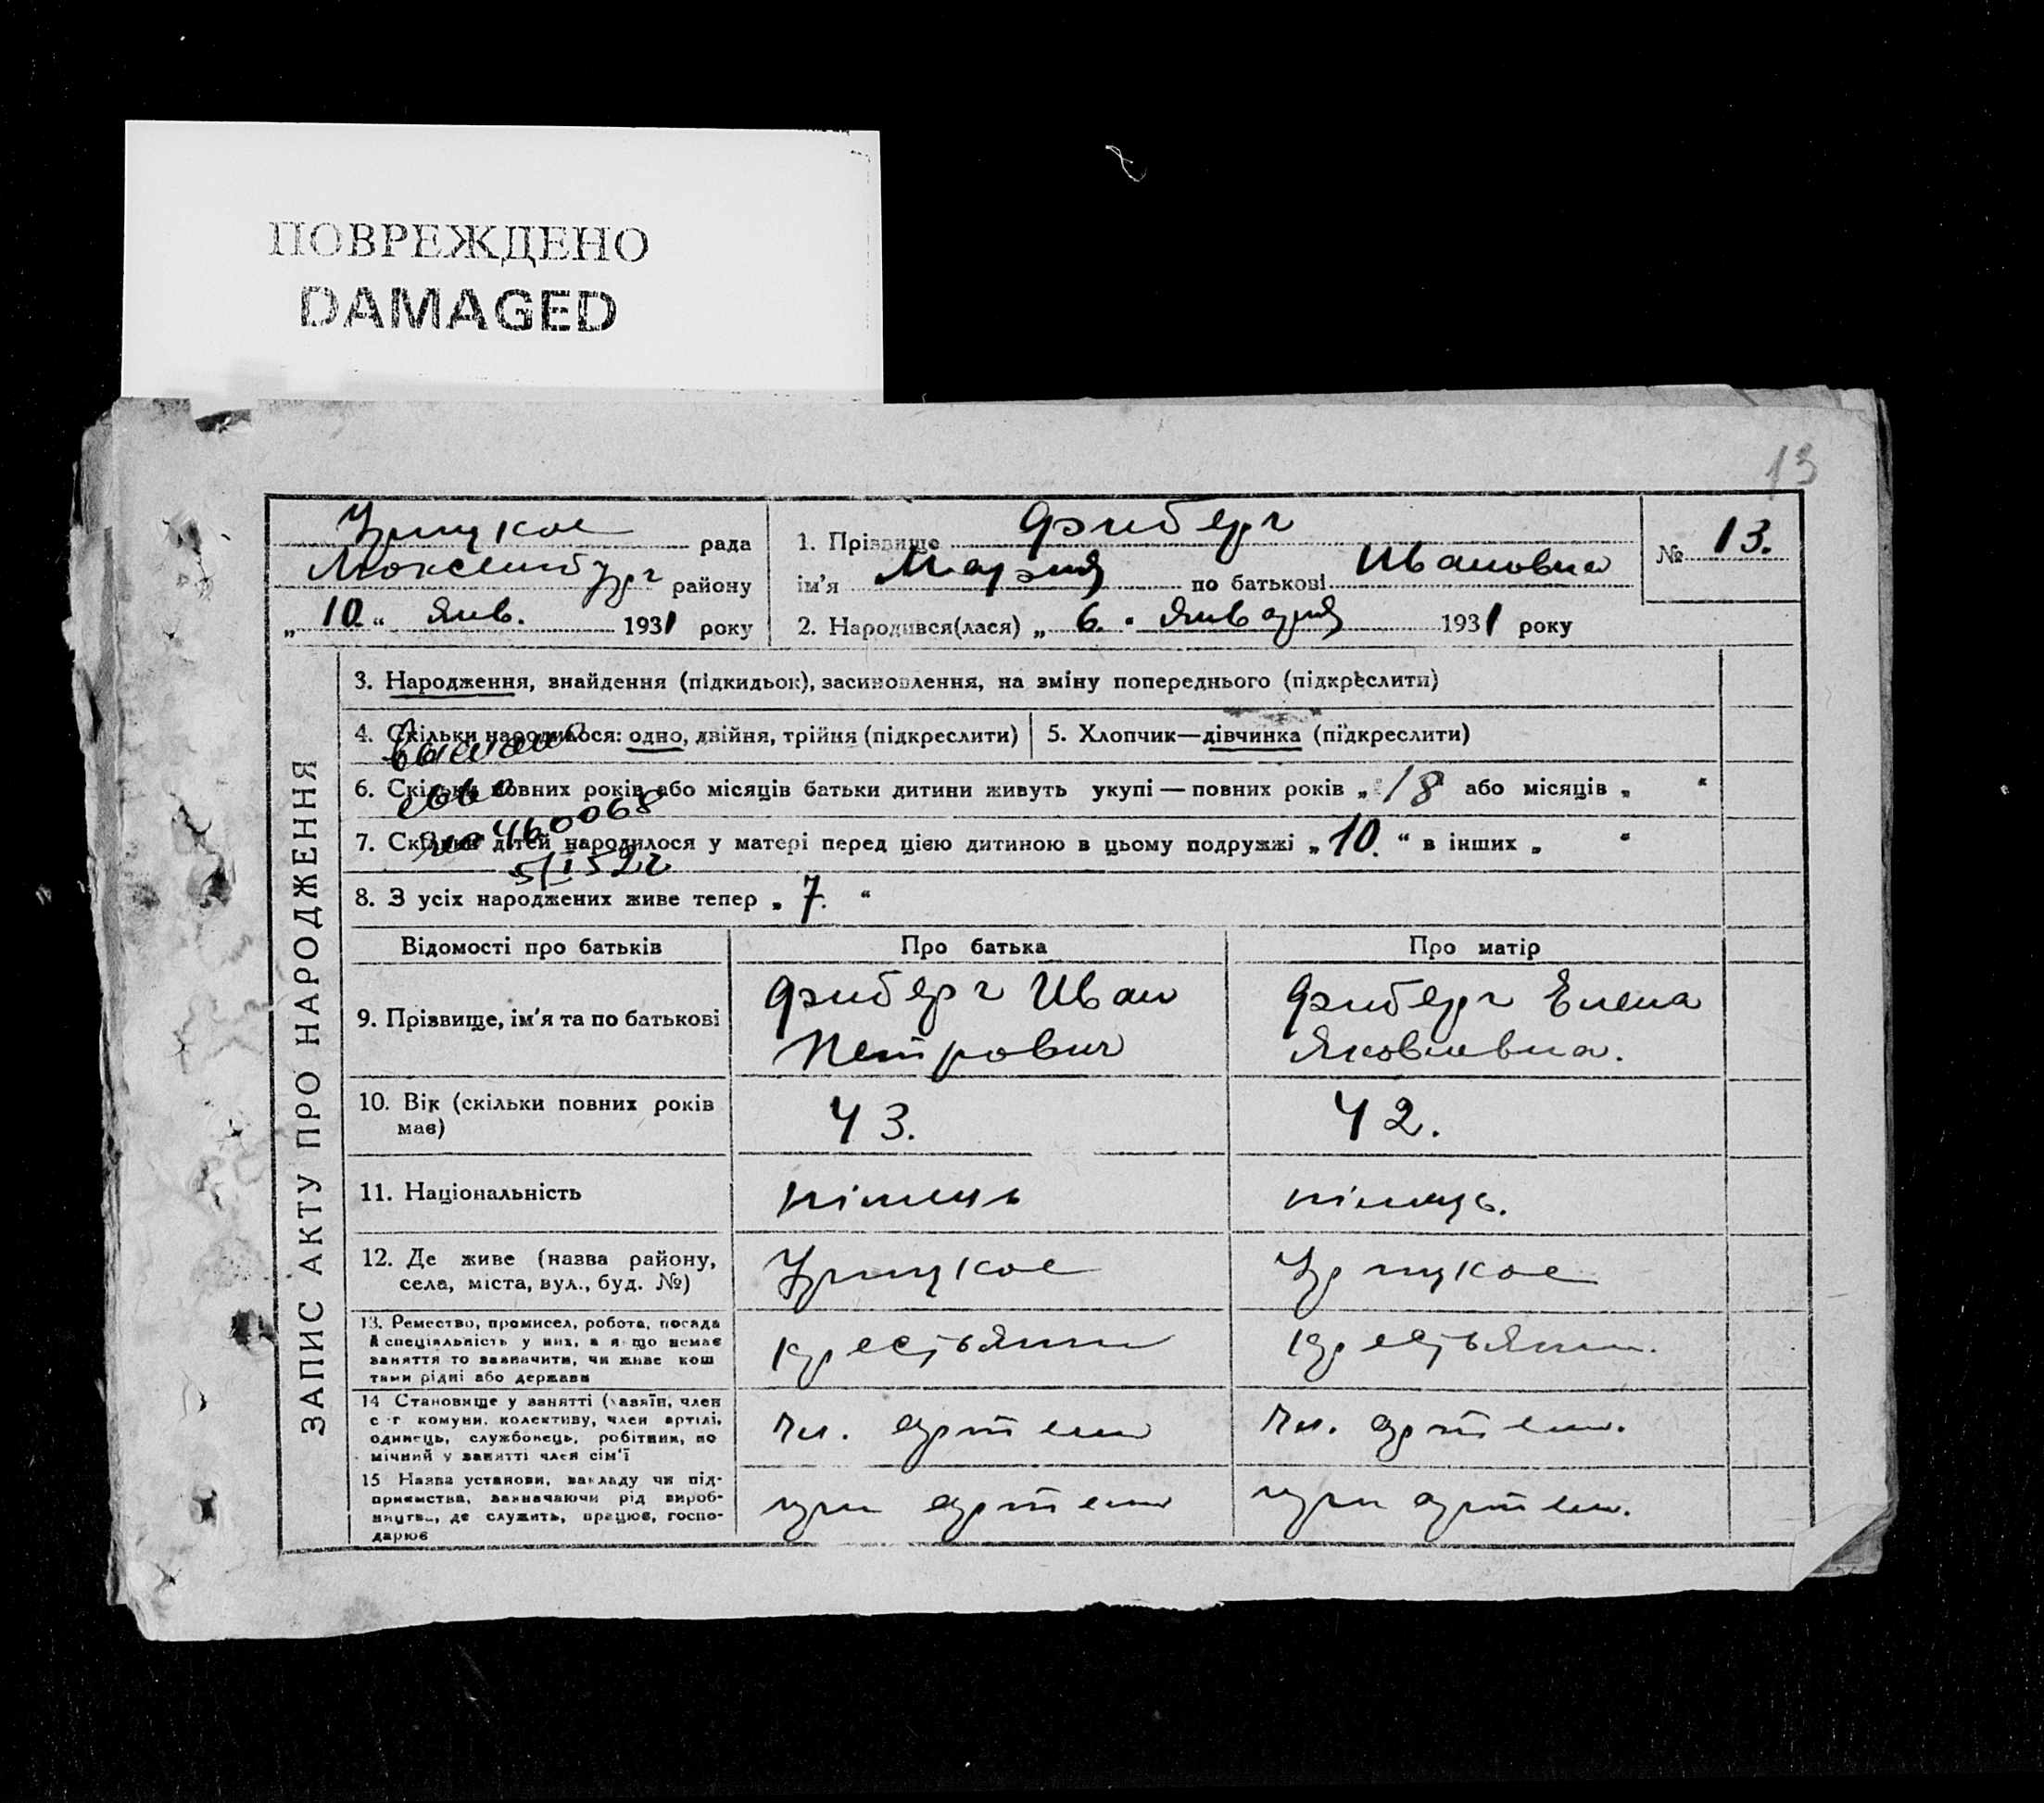 ПОВРЕЖДЕНО
DAMAGED
13
Урицкое рада
Люксембург району
„10“ янв. 1931 року
1. Прізвище Фриберг
ім'я Мария по батькові Ивановна
2. Народився(лася) „6.“ января 1931 року
№ 13.
ЗАПИС АКТУ ПРО НАРОДЖЕННЯ
3. Народження, знайдення (підкидьок), засиновлення, на зміну попереднього (підкреслити)
4. Скільки народилося: одно, двійня, трійня (підкреслити)
5. Хлопчик—дівчинка (підкреслити)
6. Скільки повних років або місяців батьки дитини живуть укупі — повних років „18 або місяців „ “
7. Скільки дітей народилося у матері перед цією дитиною в цьому подружжі „10.“ в інших „ “
460068
5/I 52 г
8. З усіх народжених живе тепер „7.“
Відомості про батьків
Про батька
Про матір
9. Прізвище, ім'я та по батькові
Фриберг Иван
Петрович
Фриберг Елена
Яковлевна.
10. Вік (скільки повних років
має)
43.
42.
11. Національність
німець
німець.
12. Де живе (назва району,
села, міста, вул., буд. №)
Урицкое
Урицкое
13. Ремество, промисел, робота, посада
й спеціяльність у них, а якщо немає
заняття то зазначити, чи живе кош
тами рідні або держави
крестьянин
крестьянин.
14 Становище у занятті (хазяїн, член
с г комуни, колективу, член артілі,
одинець, службовець, робітник, по
мічний у занятті член сім'ї
Чл. артели
Чл. артели.
15 Назва установи, закладу чи під-
приємства, зазначаючи рід вироб-
ництва, де служить, працює, госпо-
дарює
при артели
при артели.